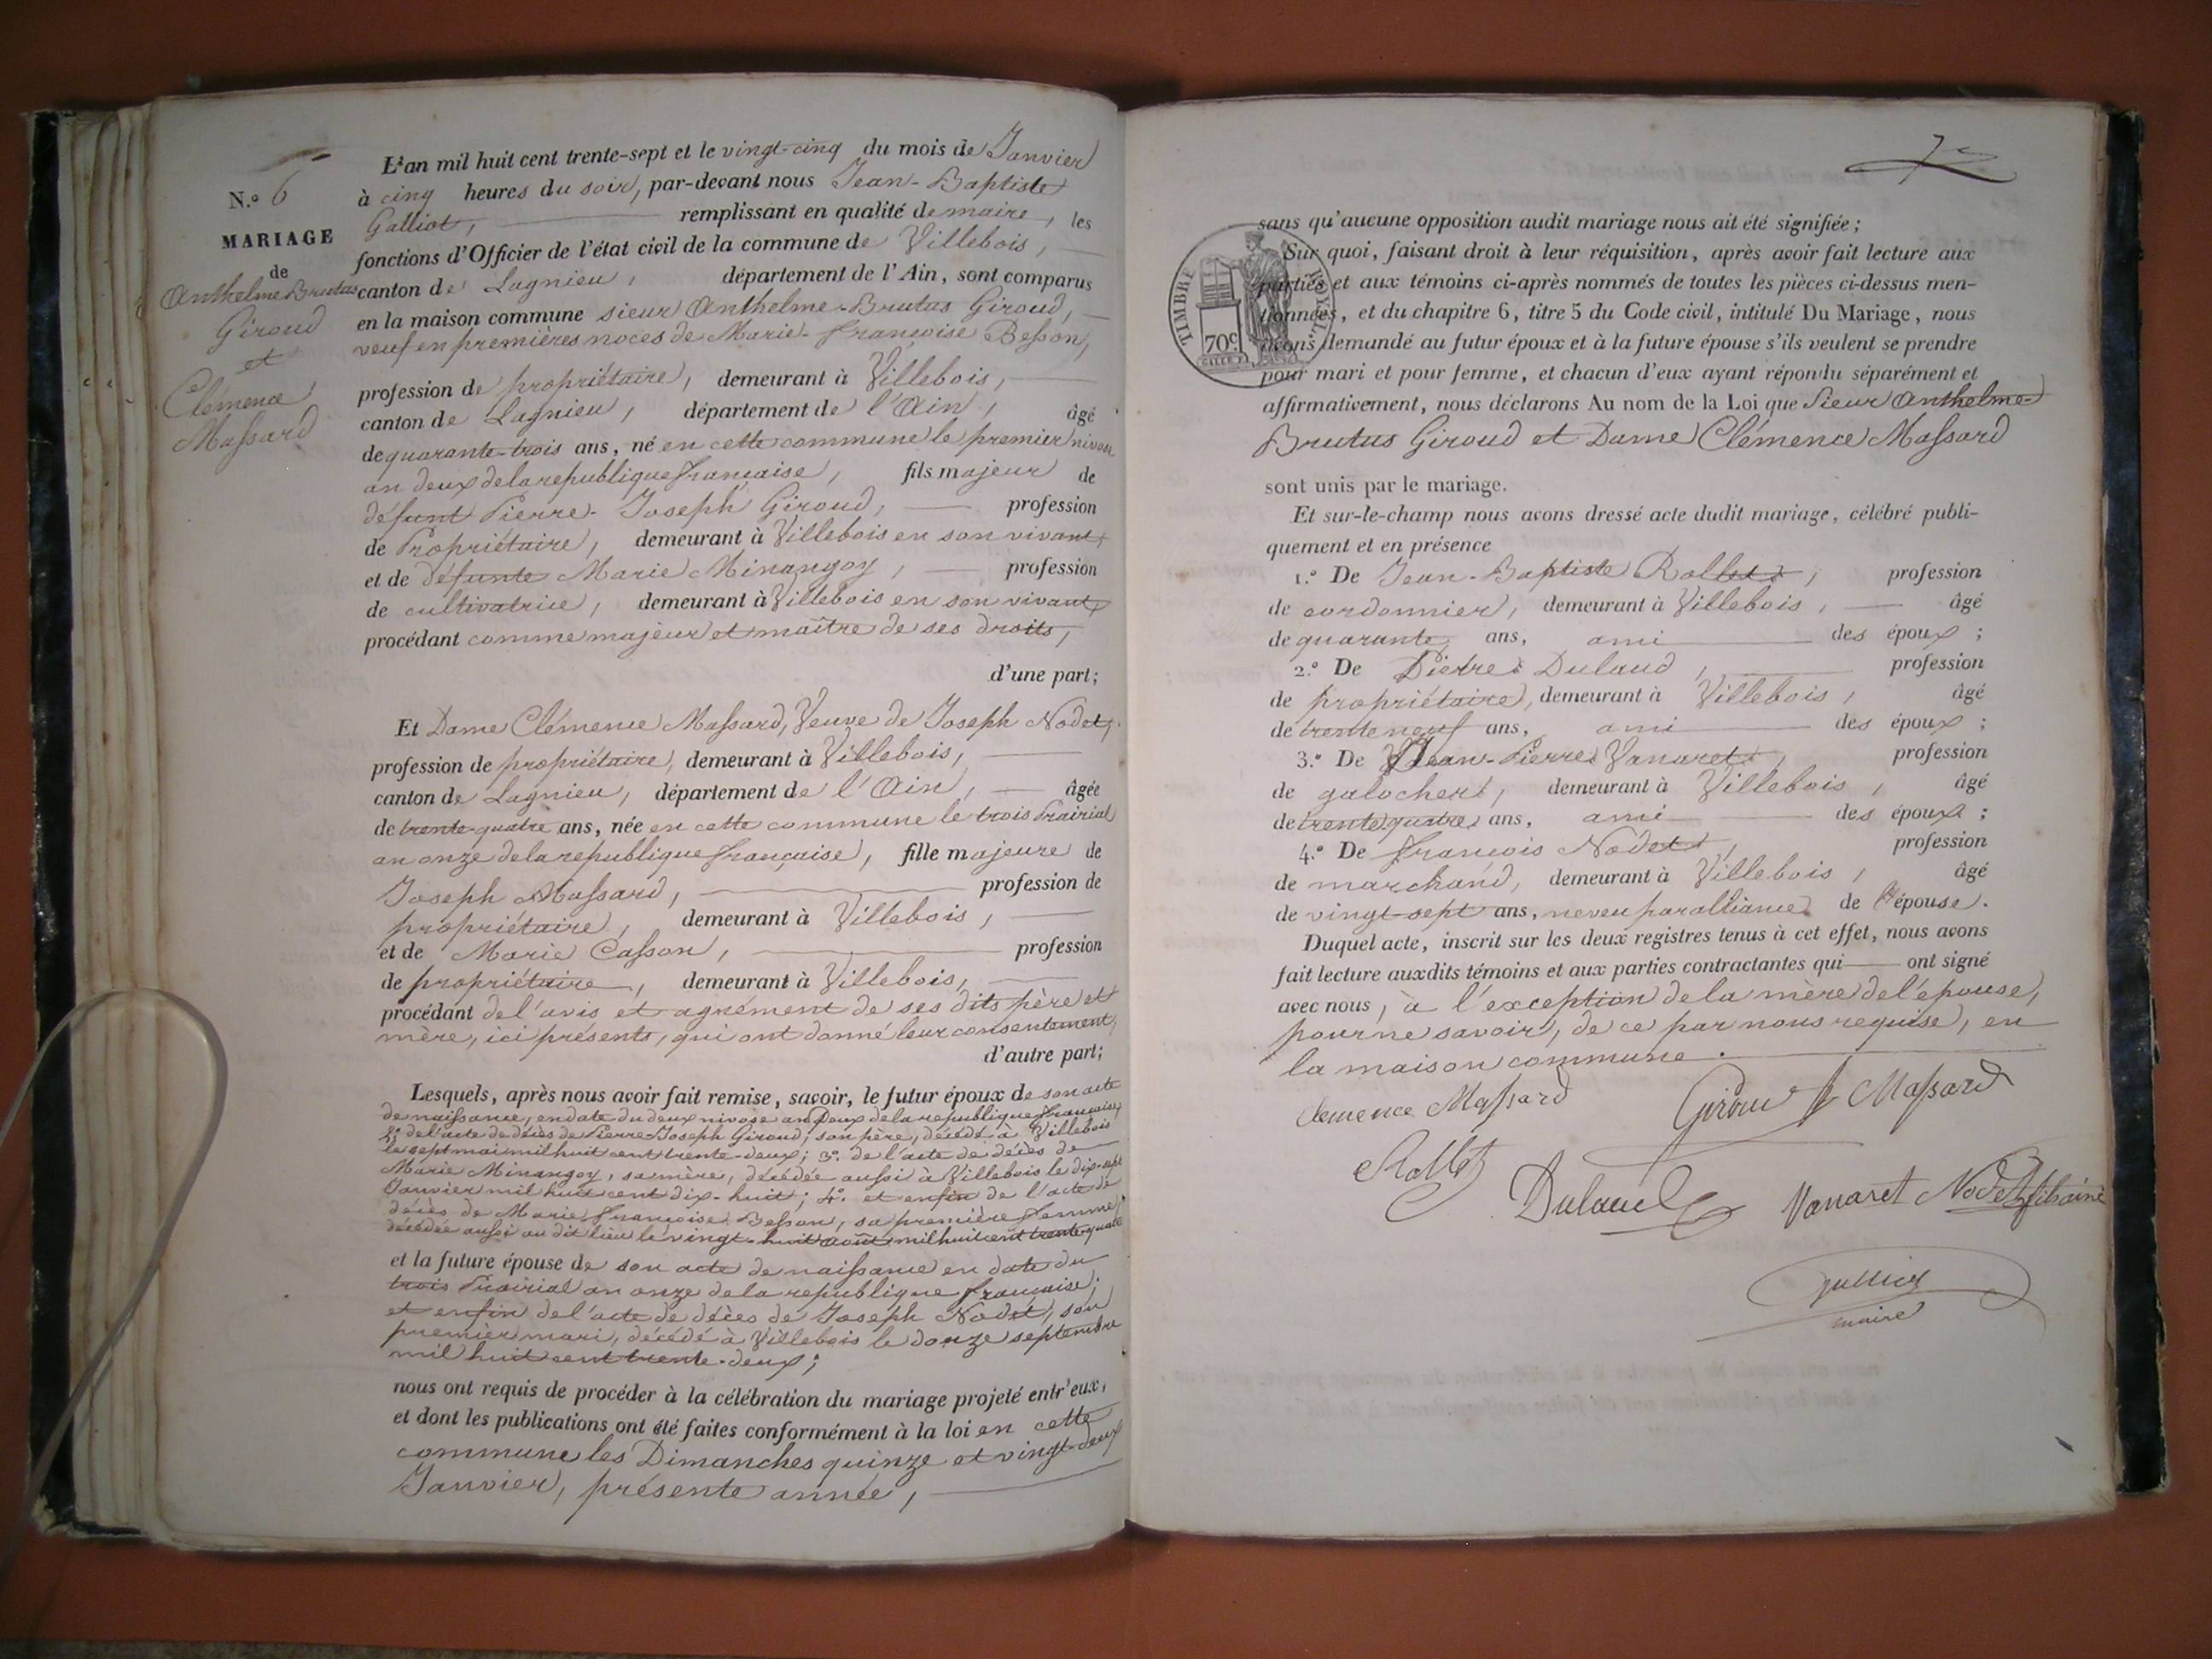 N.º 6
MARIAGE
de
Anthelme Brutus
Giroud
et
Clémence
Massard
L'an mil huit cent trente-sept et le vingt-cinq du mois de Janvier
à cinq heures du soir, par-devant nous Jean-Baptiste
Galliot, remplissant en qualité de maire, les
fonctions d'Officier de l'état civil de la commune de Villebois,
canton de Lagnieu, département de l'Ain, sont comparus
en la maison commune sieur Anthelme-Brutus Giroud,
veuf en premières noces de Marie-françoise Besson,
profession de propriétaire, demeurant à Villebois,
canton de Lagnieu, département de l'Ain, âgé
de quarante-trois ans, né en cette commune le premier nivose
an deux de la republique française, fils majeur de
défunt Pierre-Joseph Giroud, profession
de Propriétaire, demeurant à Villebois en son vivant,
et de défunte Marie Minangoy, profession
de cultivatrice, demeurant à Villebois en son vivant,
procédant comme majeur et maître de ses droits,
d'une part;
Et Dame Clémence Massard, Veuve de Joseph Nodet,
profession de propriétaire, demeurant à Villebois,
canton de Lagnieu, département de l'Ain, âgée
de trente-quatre ans, née en cette commune le trois Prairial
an onze de la republique française, fille majeure de
Joseph Massard, profession de
propriétaire, demeurant à Villebois,
et de Marie Casson, profession
de propriétaire, demeurant à Villebois,
procédant de l'avis et agrément de ses dits père et
mère, ici présents, qui ont donné leur consentement,
d'autre part;
Lesquels, après nous avoir fait remise, savoir, le futur époux de son acte
de naissance, en date du deux nivose an Deux de la republique française,
2º de l'acte de décès de Pierre-Joseph Giroud, son père, décédé à Villebois
le sept mai mil huit cent trente-deux; 3º. de l'acte de décès de
Marie Minangoy, sa mère, décédée aussi à Villebois le dix-sept
Janvier mil huit cent dix-huit; 4º. et enfin de l'acte de
décès de Marie françoise Besson, sa première femme,
décédée aussi au dit lieu le vingt-huit août mil huit cent trente-quatre
et la future épouse de son acte de naissance en date du
trois Prairial an onze de la republique française;
et enfin de l'acte de décès de Joseph Nodet, son
premier mari, décédé à Villebois le douze septembre
mil huit cent trente-deux;
nous ont requis de procéder à la célébration du mariage projeté entr'eux,
et dont les publications ont été faites conformément à la loi en cette
commune les Dimanches quinze et vingt-deux
Janvier, présente année,
7e
TIMBRE ROYAL
70c
sans qu'aucune opposition audit mariage nous ait été signifiée;
Sur quoi, faisant droit à leur réquisition, après avoir fait lecture aux
parties et aux témoins ci-après nommés de toutes les pièces ci-dessus men-
tionnées, et du chapitre 6, titre 5 du Code civil, intitulé Du Mariage, nous
avons demandé au futur époux et à la future épouse s'ils veulent se prendre
pour mari et pour femme, et chacun d'eux ayant répondu séparément et
affirmativement, nous déclarons Au nom de la Loi que Sieur Anthelme-
Brutus Giroud et Dame Clémence Massard
sont unis par le mariage.
Et sur-le-champ nous avons dressé acte dudit mariage, célébré publi-
quement et en présence
1.º De Jean-Baptiste Rollet, profession
de cordonnier, demeurant à Villebois, âgé
de quarante ans, ami des époux;
2.º De Pierre Dulaud, profession
de propriétaire, demeurant à Villebois, âgé
de trente neuf ans, ami des époux;
3.º De Jean-Pierre Vanaret, profession
de galocher, demeurant à Villebois, âgé
de trente quatre ans, ami des époux;
4.º De françois Nodet, profession
de marchand, demeurant à Villebois, âgé
de vingt-sept ans, neveu par alliance de l'épouse.
Duquel acte, inscrit sur les deux registres tenus à cet effet, nous avons
fait lecture auxdits témoins et aux parties contractantes qui ont signé
avec nous, à l'exception de la mère de l'épouse,
pour ne savoir, de ce par nous requise, en
la maison commune.
Clemence Massard Giroud J Massard
Rollet Dulaud Vanaret Nodet fils ainé
Galliot
maire